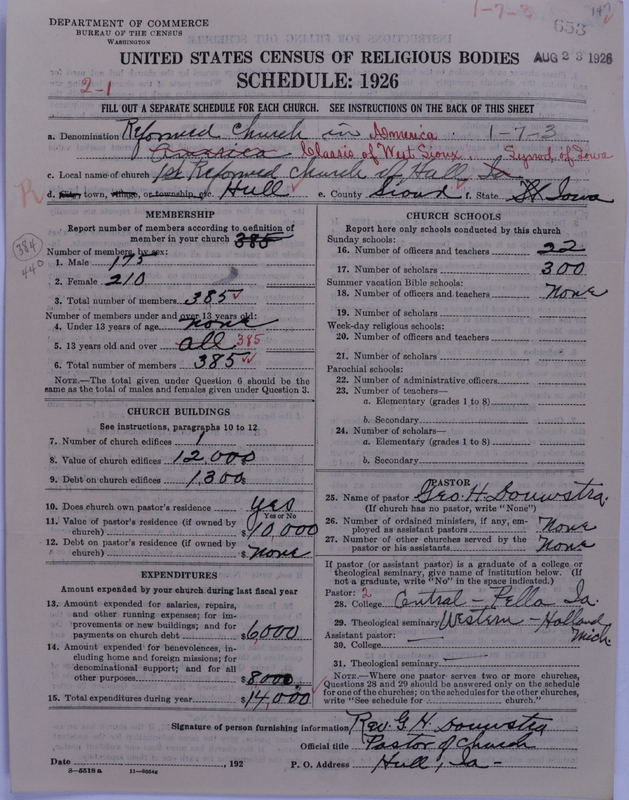 DEPARTMENT OF COMMERCE
BUREAU OF THE CENSUS
WASHINGTON
1-7-3
147
653
UNITED STATES CENSUS OF RELIGIOUS BODIES
AUG 23 1926
SCHEDULE: 1926
2-1
FILL OUT A SEPARATE SCHEDULE FOR EACH CHURCH. SEE INSTRUCTIONS ON THE BACK OF THIS SHEET
a. Denomination Reformed Church in America 1-7-3
America Classis of West Sioux. Synod of Iowa
c. Local name of church 1st Reformed Church of Hull Ia
R
d. City, town, village, or township, etc. Hull e. County Sioux f. State Iowa
MEMBERSHIP
Report number of members according to definition of member in your church 385
384
440
Number of members by sex:
1. Male 175
2. Female 210
3. Total number of members 385
Number of members under and over 13 years old:
4. Under 13 years of age none
5. 13 years old and over all 385
6. Total number of members 385
NOTE.—The total given under Question 6 should be the
same as the total of males and females given under Question 3.
CHURCH BUILDINGS
See instructions, paragraphs 10 to 12
7. Number of church edifices 1
8. Value of church edifices $12,000
9. Debt on church edifices $1300
10. Does church own pastor's residence yes
Yes or No
11. Value of pastor's residence (if owned by
church) $10,000
12. Debt on pastor's residence (if owned by
church) $none
EXPENDITURES
Amount expended by your church during last fiscal year
13. Amount expended for salaries, repairs,
and other running expenses; for im-
provements or new buildings; and for
payments on church debt $6,000
14. Amount expended for benevolences, in-
cluding home and foreign missions; for
denominational support; and for all
other purposes $8000
15. Total expenditures during year $14,000
CHURCH SCHOOLS
Report here only schools conducted by this church
Sunday schools:
16. Number of officers and teachers 22
17. Number of scholars 300
Summer vacation Bible schools:
18. Number of officers and teachers None
19. Number of scholars
Week-day religious schools:
20. Number of officers and teachers
21. Number of scholars
Parochial schools:
22. Number of administrative officers
23. Number of teachers—
a. Elementary (grades 1 to 8)
b. Secondary
24. Number of scholars—
a. Elementary (grades 1 to 8)
b. Secondary
PASTOR
25. Name of pastor Geo. H. Douwstra.
(If church has no pastor, write "None")
26. Number of ordained ministers, if any, em-
ployed as assistant pastors None
27. Number of other churches served by the
pastor or his assistants None
If pastor (or assistant pastor) is a graduate of a college or
theological seminary, give name of institution below. (If
not a graduate, write "No" in the space indicated.)
Pastor: 2
28. College Central - Pella Ia.
29. Theological seminary Western - Holland
Mich
Assistant pastor:
30. College
31. Theological seminary
NOTE.—Where one pastor serves two or more churches,
Questions 28 and 29 should be answered only on the schedule
for one of the churches; on the schedules for the other churches,
write "See schedule for church."
Signature of person furnishing information Rev. G. H. Douwstra
Official title Pastor of Church
Date , 192 P. O. Address Hull, Ia -
8-5518a 11-9554g